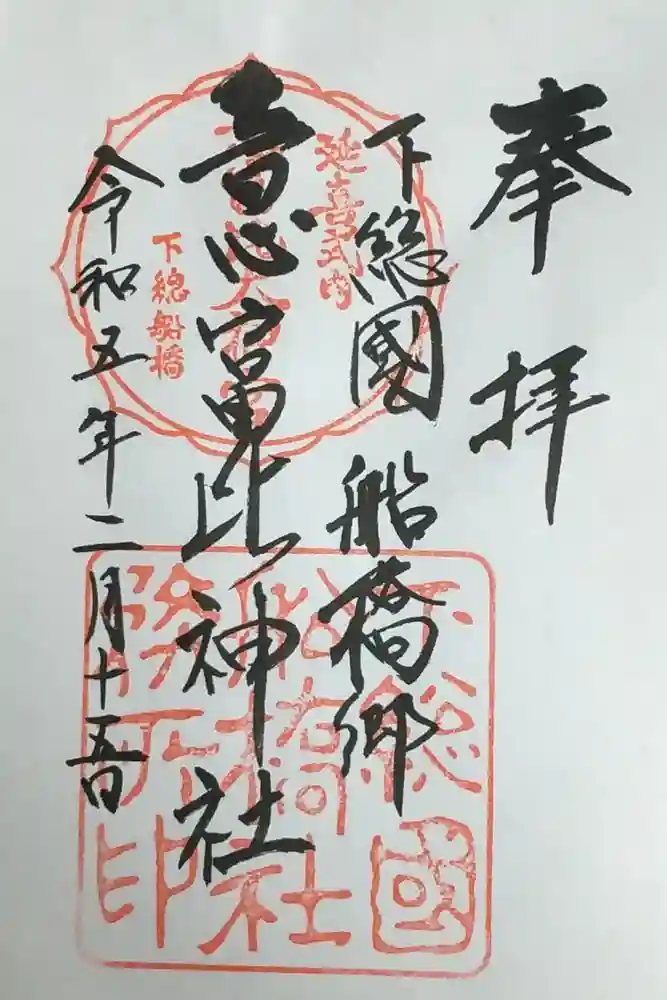 奉拝
下総國船橋郷
意富比神社
令和五年二月十五日
延喜式内
下總船橋